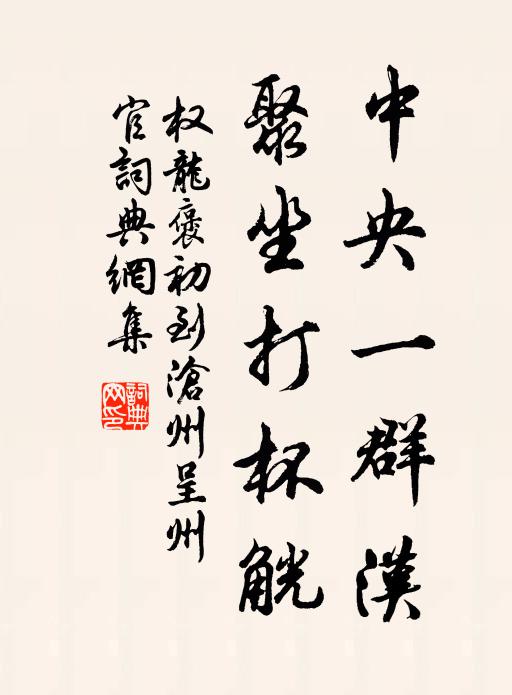 中央一群漢
聚坐打杯觥
权龍褒初到滄州呈州
官詞典網集
詞典
网印